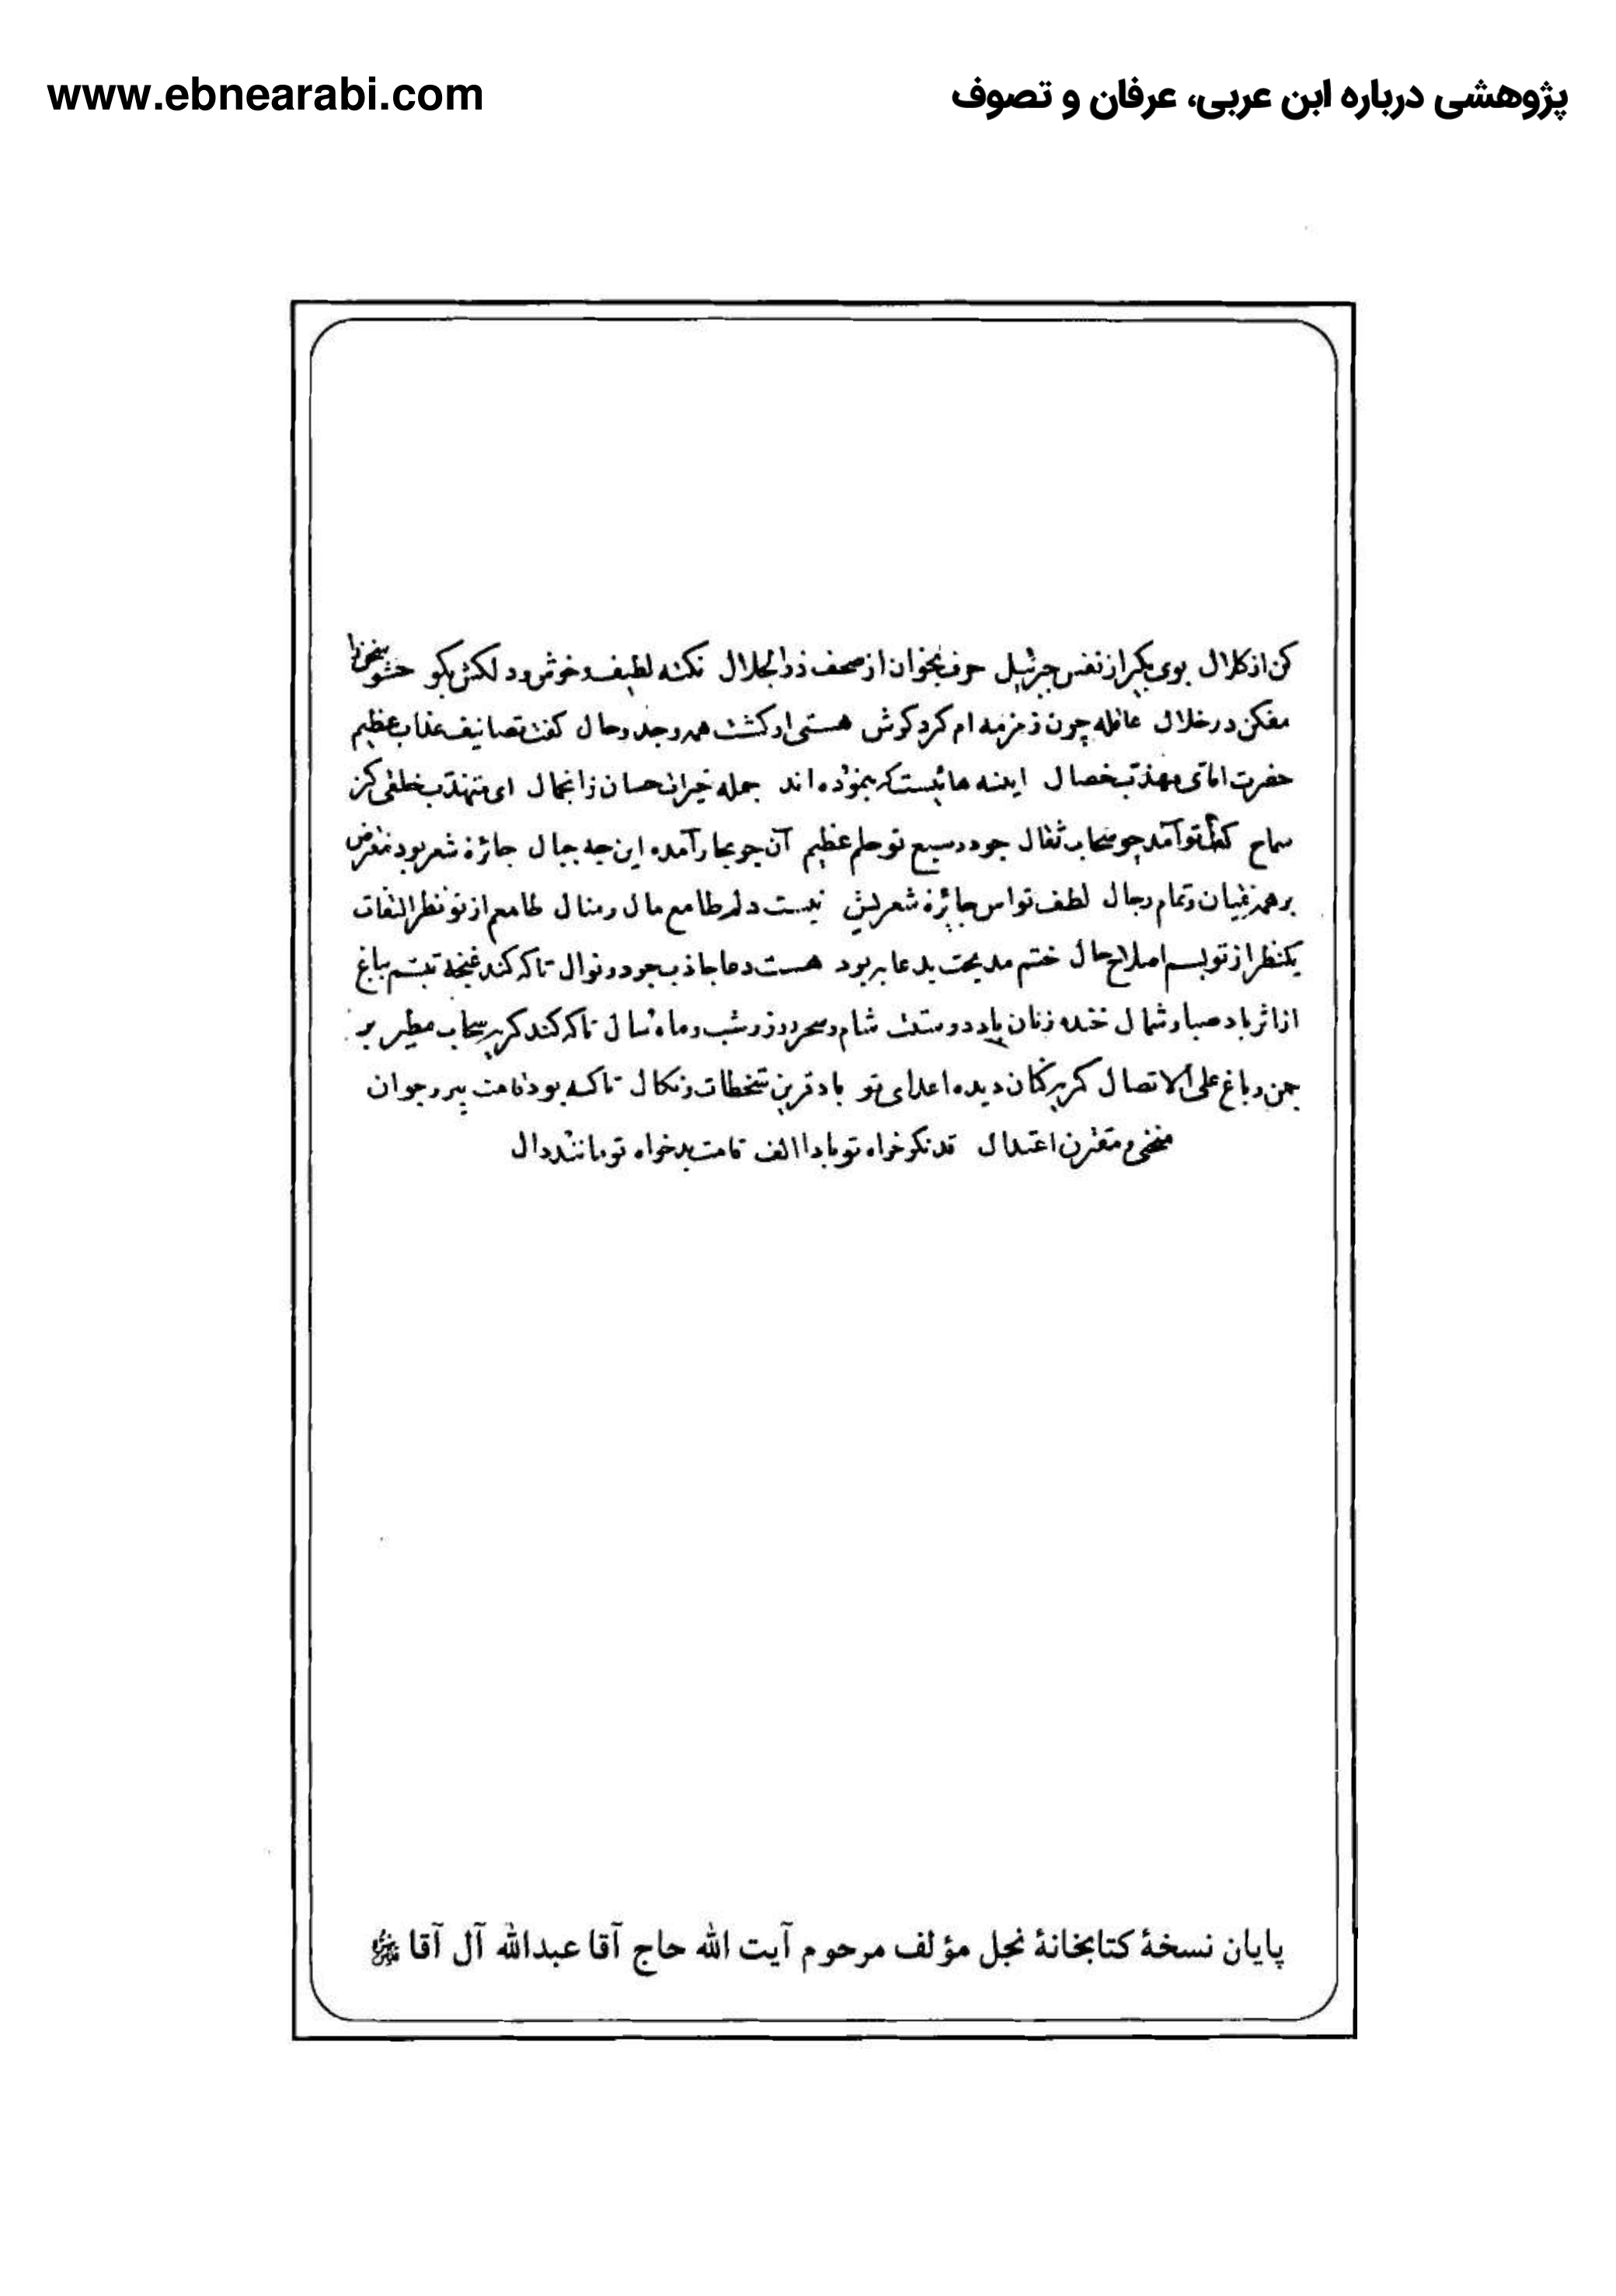 www.ebnearabi.com پژوهشی درباره ابن عربی، عرفان و تصوف
کن از کلال بوی بکیر از نفس جبرئیل حرف بخوان از صحف ذو الجلال نکته لطیف و خوش و دلکش بگو حشو
مفکن در خلال عاقله چون زمزمه ام کرد کوش هستی او کشت همه وجد و حال کفت تصانیف عظیم
حضرت اقای مهذب خصال اینه هائیست که بنموده اند جمله خیرات حسان زانجمال ای متهذب خلفی کز
سماح کف تو آمد چو سحاب ثقال جود وسیع تو حلم عظیم آن چو بحار آمده این چه جبال جائزه شعر بود مفترض
بر همه غنیان و تمام رجال لطف تو اس جایزه شعر نیست دلم طامع مال و منال طامعم از تو نظر التفات
یکنظر از تو بس اصلاح حال ختم مدیحت بدعا به بود هست دعا جاذب جود و نوال تا که کند غنچه تبسم بباغ
از اثر باد صبا و شمال خنده زنان باد دوستت شام و سحر روز و شب و ماه و سال تا که کند کریه سحاب مطیر بر
چمن و باغ علی الاتصال کریه کنان دیده اعدای تو باد قرین تخطات و نکال تا که بود قامت پیر و جوان
منحنی و مقترن اعتدال قد نکو خواه تو بادا الف قامت بدخواه تو مانند دال
پایان نسخۀ کتابخانۀ نجل مؤلف مرحوم آیت الله حاج آقا عبدالله آل آقا